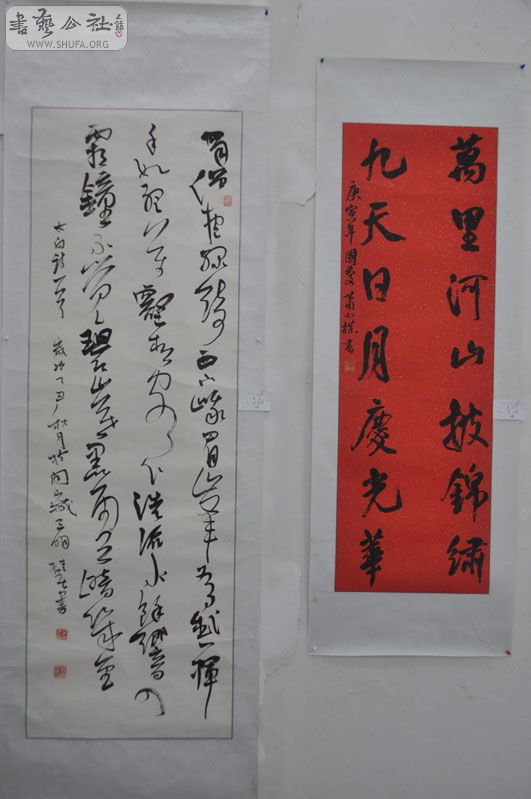 書藝公社
WWW.SHUFA.ORG
萬里河山披錦繡
九天日月慶光華
庚寅年國慶
蜀僧抱綠綺西下峨眉峰為我一揮
手如聽万壑松客心洗流水餘響入
霜鐘不覺碧山暮
太白詩一首 歲次丁丑秋月於